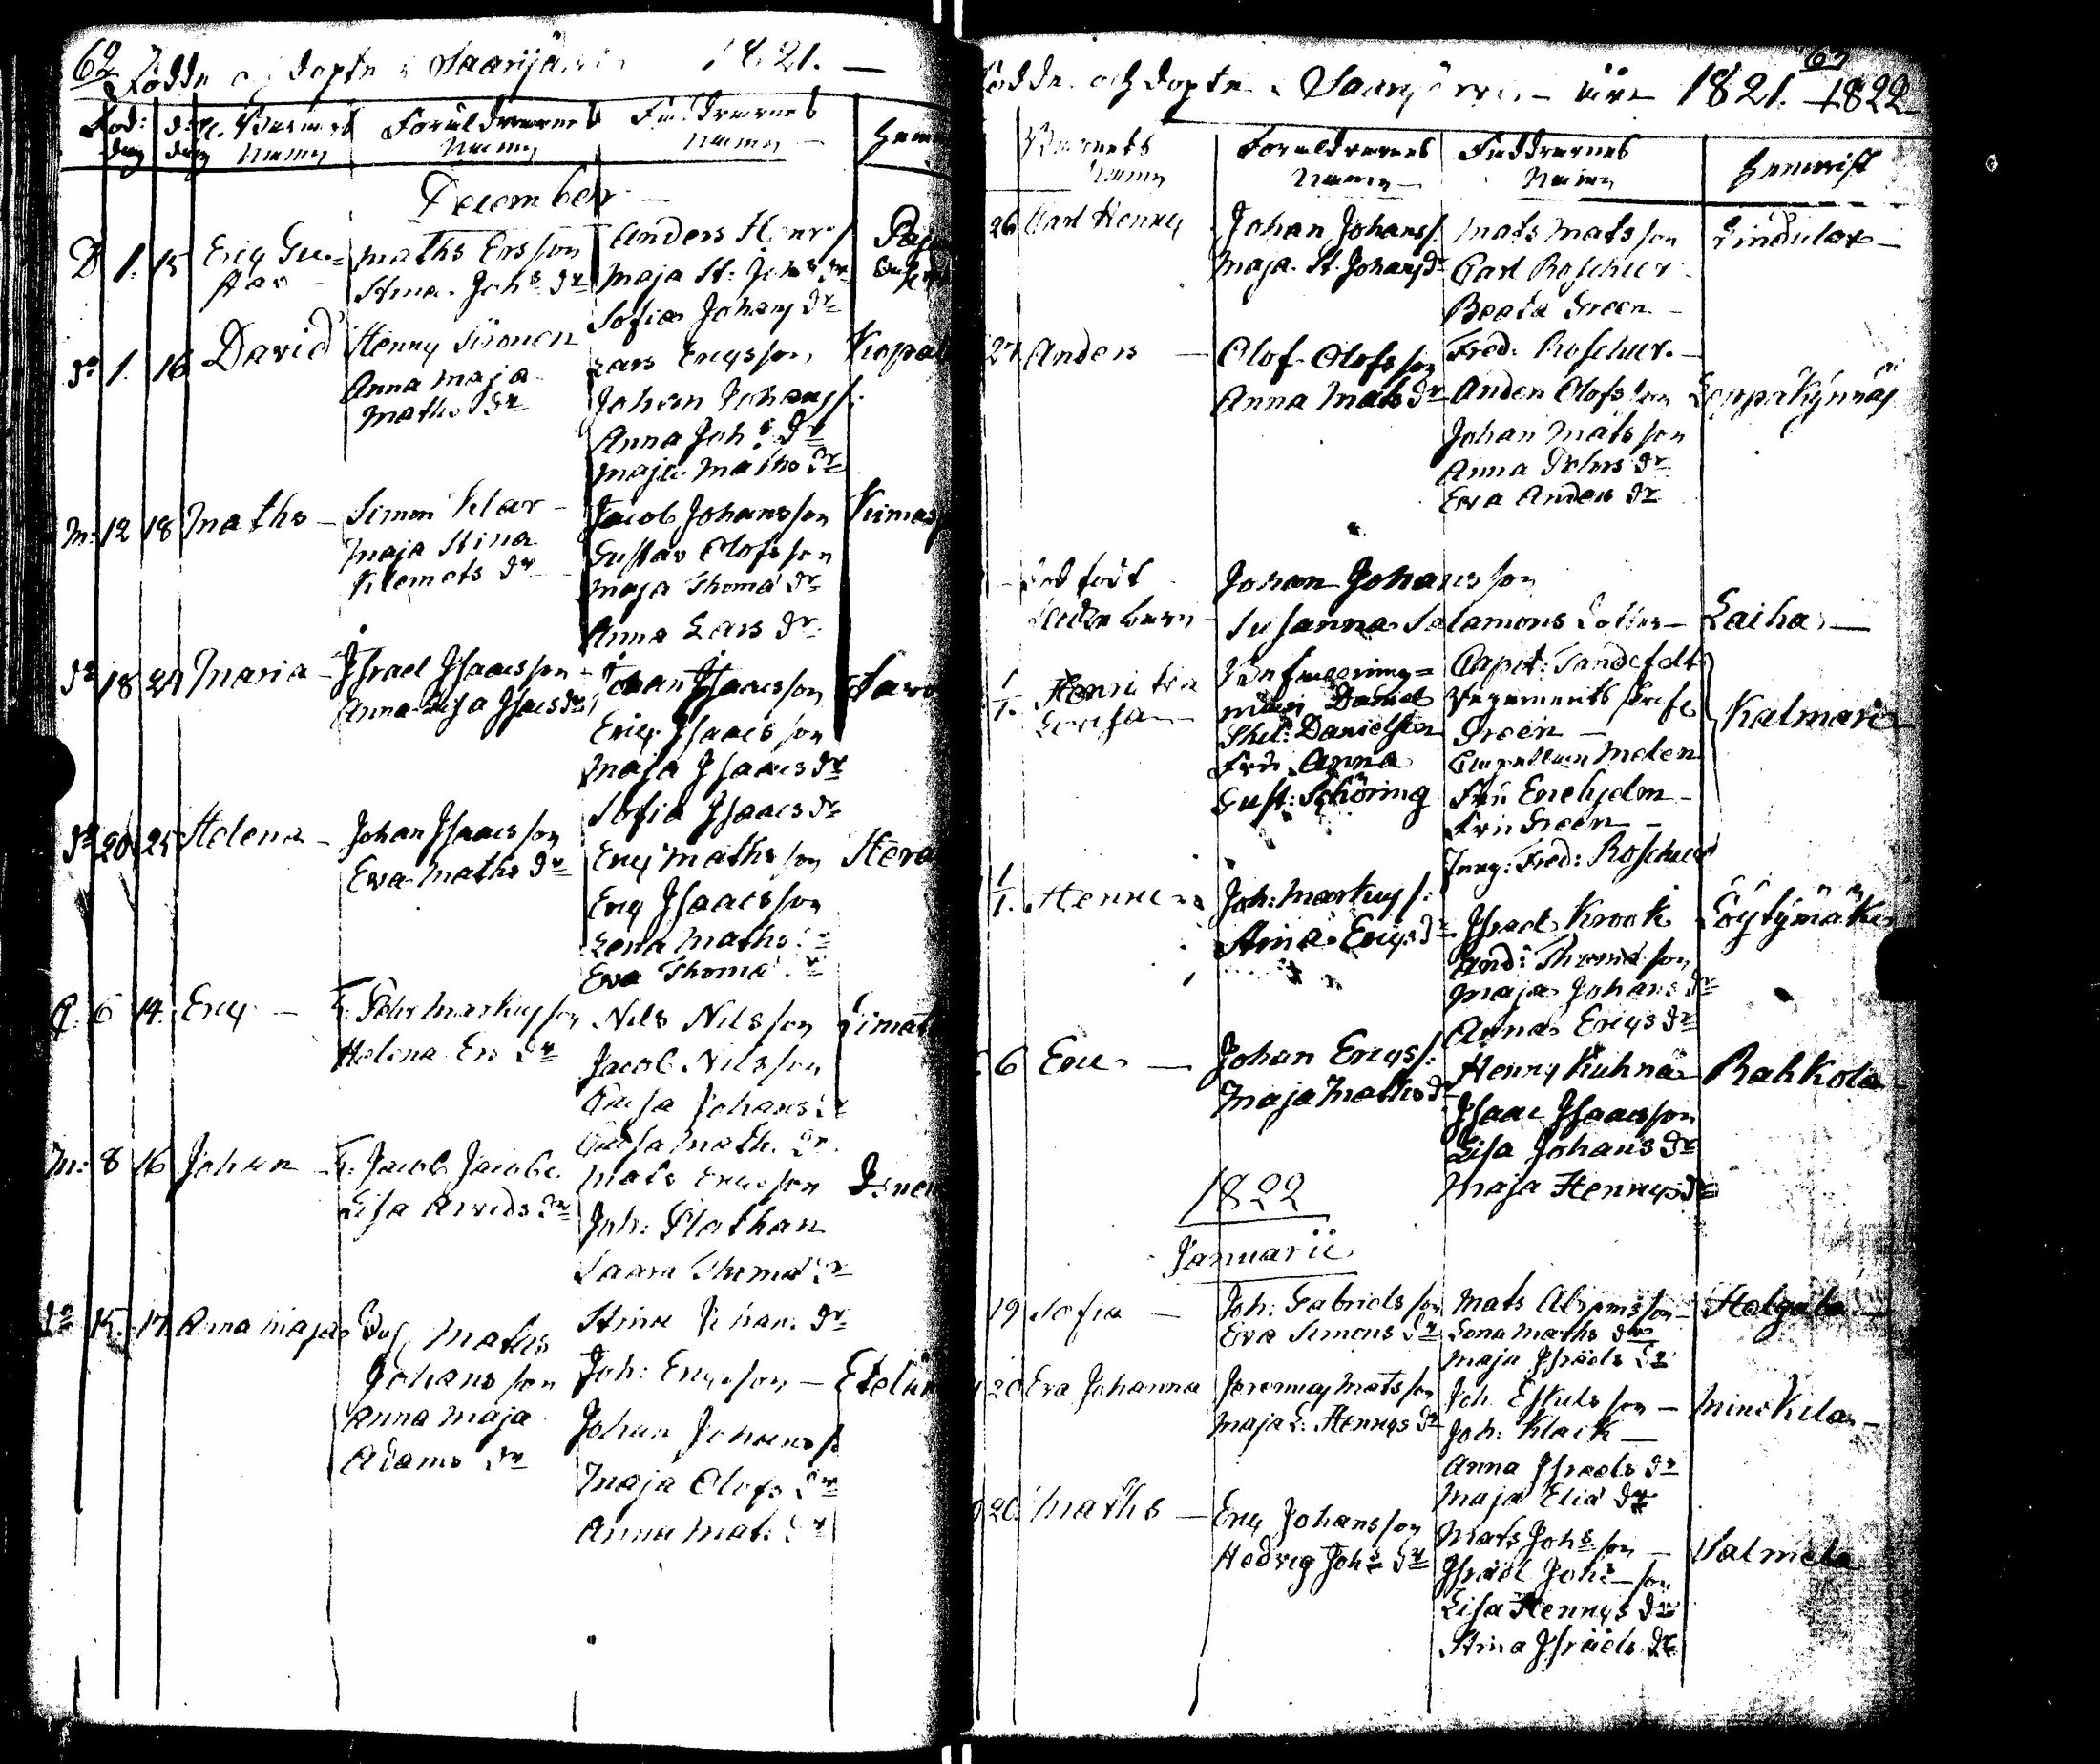 62 Födde och döpte i Saarijärvi 1821. —
Föd: dag
dop dag
Barnets Namn
Föräldrarnes Namn
Faddrarnes Namn —
Hem
December
D 1. 15 Eric Gu=
stav
Maths Ersson
Stina Johs dr
Anders Henr
Maja St: Johs dr
Sofia Johans dr
do 1. 16 David
Henric Sironen
Anna Maja
Maths dr
Lars Ericsson
Johan Johans s.
Anna Johs dr
Maja Maths dr
Kopal
M: 12 18 Maths —
Simon Klar —
Maja Stina
Klemets dr
Jacob Johansson
Gustav Olofsson
Maja Thoma dr
Anna Lars dr
Kimas
do 18 24 Maria —
Israel Isaacsson
Anna Lisa Isacs dr
Johan Isaacsson
Eric Isaacsson
Maja Isaacs dr
Sofia Isaacs dr
do 20 25 Helena —
Johan Isaacsson
Eva Maths dr
Eric Mathsson
Eric Isaacsson
Lena Maths dr
Eva Thoma dr
Hera
6 14. Eric —
Pehr Markusson
Helena Ers dr
Nils Nilsson
Jacob Nilsson
Johans dr
Math. dr
Limat
M: 8 16 Johan
Jacob Jacobs.
Lisa Arvids dr
Mats Ericsson
Joh: Plathan
Saara Thoma dr
Stina Johans dr
do 15. 17 Anna Maja
Maths
Johansson
Anna Maja
Adams dr
Joh: Ericsson —
Johan Johans s
Maja Olofs dr
Anna Mats dr
63
Födde och döpte i Saarijärvi — åre 1821. — 1822
Barnets Namn
Föräldrarnes Namn —
Faddrarnes Namn
Hemvist
26 Carl Henric
Johan Johans s.
Maja St. Johans dr
Mats Matsson
Carl Roschier
Beata Green —
Lindulax —
27 Anders —
Olof Olofsson
Anna Mats dr
Fred: Roschier. —
Anders Olofsson
Johan Matsson
Anna Pehrs dr
Eva Anders dr
Leppäkynnäs
död född
Johan Johansson
Susanna Salamons dotter — Laiha —
1/1. Henrietta
Lovisa —
Befwerings=
man Daniel
Danielson
Fru Anna
Gust: Schöring
Capit: Tandefelt
Regements
Green —
Capellan Melen
Fru Enehjelm —
Fru Green —
Jung: Fred: Roschier
Kalmari
1/1. Henric
Joh: Markus s.
Stina Erics dr
Israel Krook
And: Thomasson
Maja Johans dr
Anna Erics dr
Löytymäki
6 Eric —
Johan Erics s.
Maja Maths dr
Henric Kuhna
Isaac Isaacsson
Lisa Johans dr
Maja Henrics dr
Rahkola
1822
Januarii
19 Sofia —
Joh: Gabrielsson
Eva Simons dr
Mats Abramsson —
Lena Maths dr
Maja Israels dr
20 Eva Johanna
Jeremias Matsson
Maja L: Henrics dr
Joh: Eskilsson —
Joh: Klack —
Anna Israels dr
Maja Elia dr
Minkila —
20. Maths —
Eric Johansson
Hedvig Johs dr
Mats Johs son —
Israel Johs son
Lisa Henrics dr
Stina Israels dr
Salmela